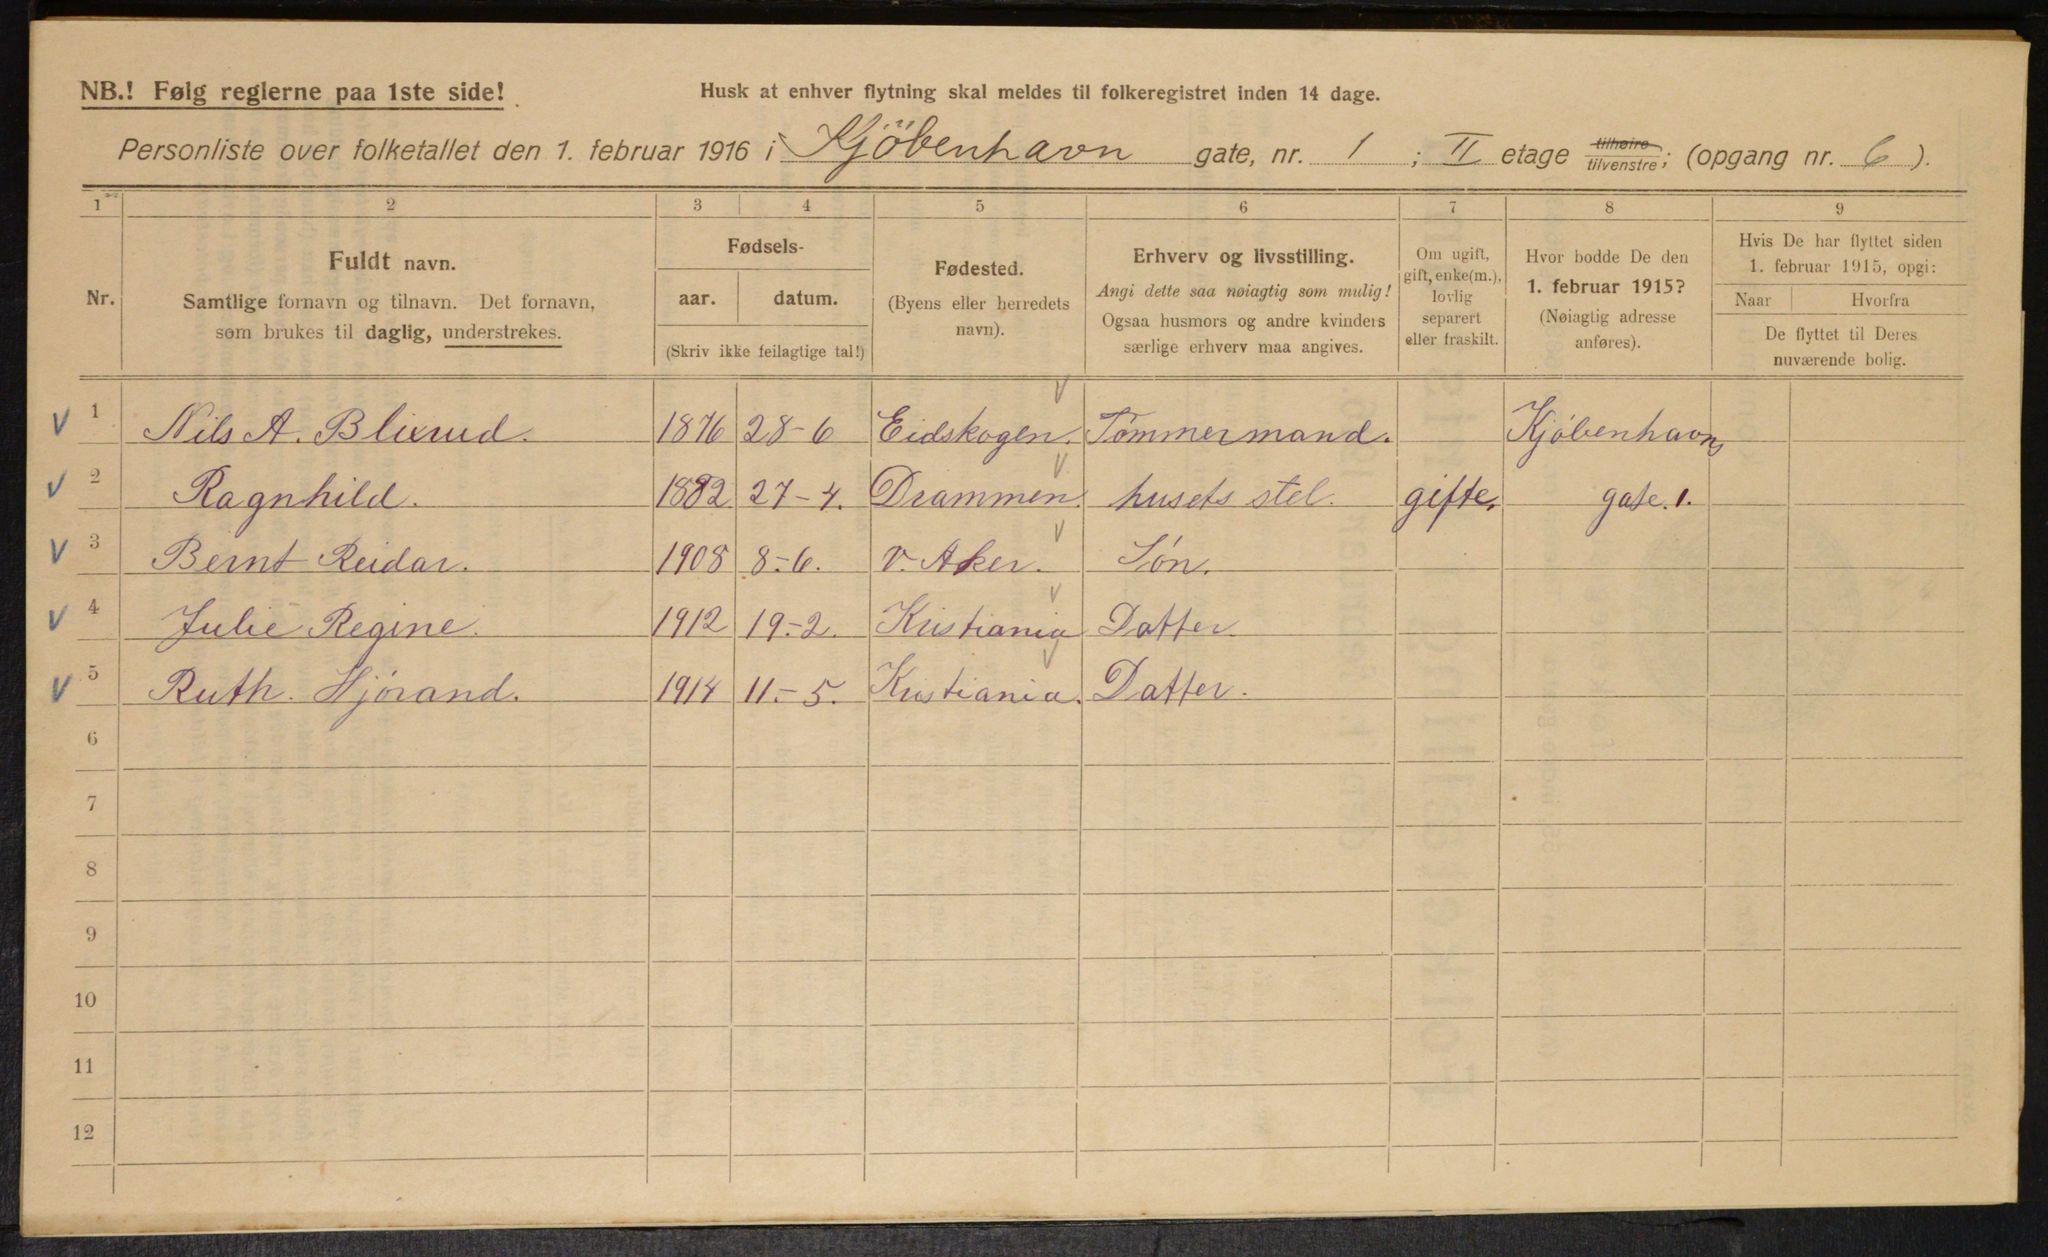 NB.! Følg reglerne paa 1ste side!
Husk at enhver flytning skal meldes til folkeregistret inden 14 dage.
Personliste over folketallet den 1. februar 1916 i Kjøbenhavn gate, nr. 1 ; II etage tilhøire/tilvenstre; (opgang nr. 6 ).
1 2 3 4 5 6 7 8 9
Nr.
Fuldt navn.
Samtlige fornavn og tilnavn. Det fornavn,
som brukes til daglig, understrekes.
Fødsels-
aar. datum.
(Skriv ikke feilagtige tal!)
Fødested.
(Byens eller herredets
navn).
Erhverv og livsstilling.
Angi dette saa nøiagtig som mulig!
Ogsaa husmors og andre kvinders
særlige erhverv maa angives.
Om ugift,
gift, enke(m.),
lovlig
separert
eller fraskilt.
Hvor bodde De den
1. februar 1915?
(Nøiagtig adresse
anføres).
Hvis De har flyttet siden
1. februar 1915, opgi:
Naar Hvorfra
De flyttet til Deres
nuværende bolig.
1 Nils A. Blixrud. 1876 28-6 Eidskogen. Tømmermand. Kjøbenhavns
2 Ragnhild. 1882 27-4. Drammen. husets stel. gifte. gate. 1.
3 Bernt Reidar. 1908 8.-6. V. Aker. Søn.
4 Julie Regine. 1912 19.-2. Kristiania Datter.
5 Ruth. Hjørand. 1914 11.-5. Kristiania. Datter.
6
7
8
9
10
11
12